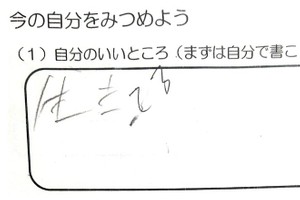 今の自分をみつめよう
(1)自分のいいところ(まずは自分で書こ
生きてる